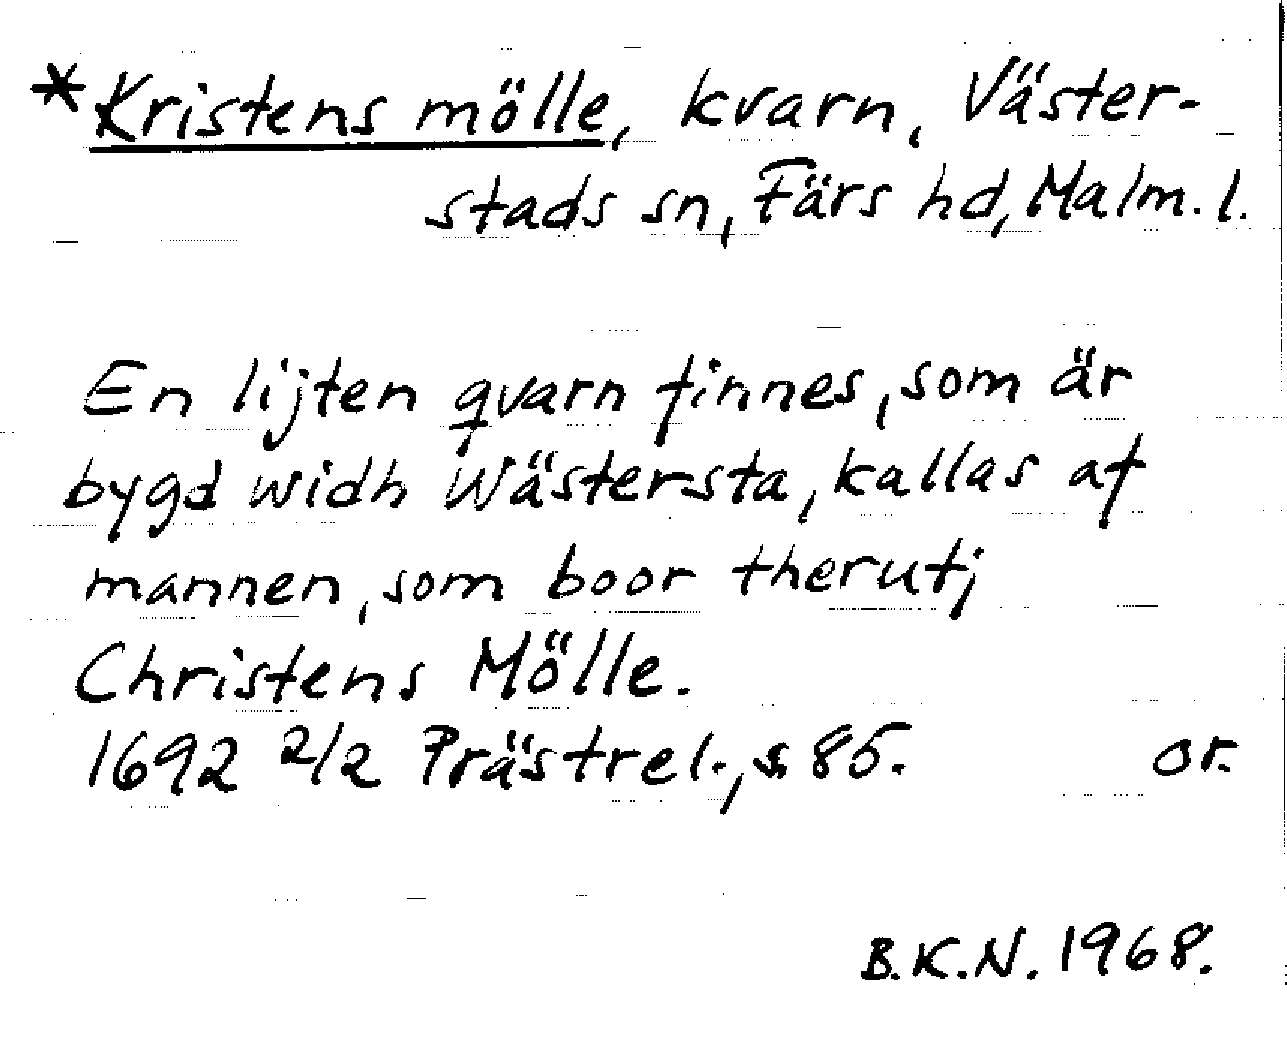 *Kristens mölle, kvarn, Väster-
stads sn, Färs hd, Malm. l.
En lijten qvarn finnes, som är
bygd widh Wästersta, kallas af
mannen, som boor therutj
Christens Mölle.
1692 2/2 Prästrel., s. 85. or.
B.K.N. 1968.